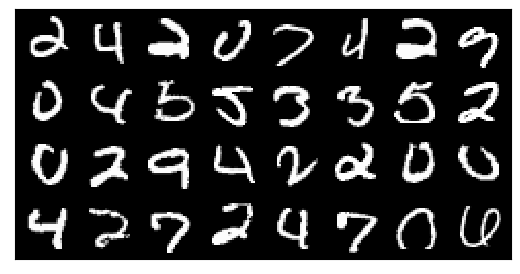 2 4 2 0 7 4 2 9
0 4 5 5 3 3 5 2
0 2 9 4 2 2 0 0
4 2 7 2 4 7 0 6